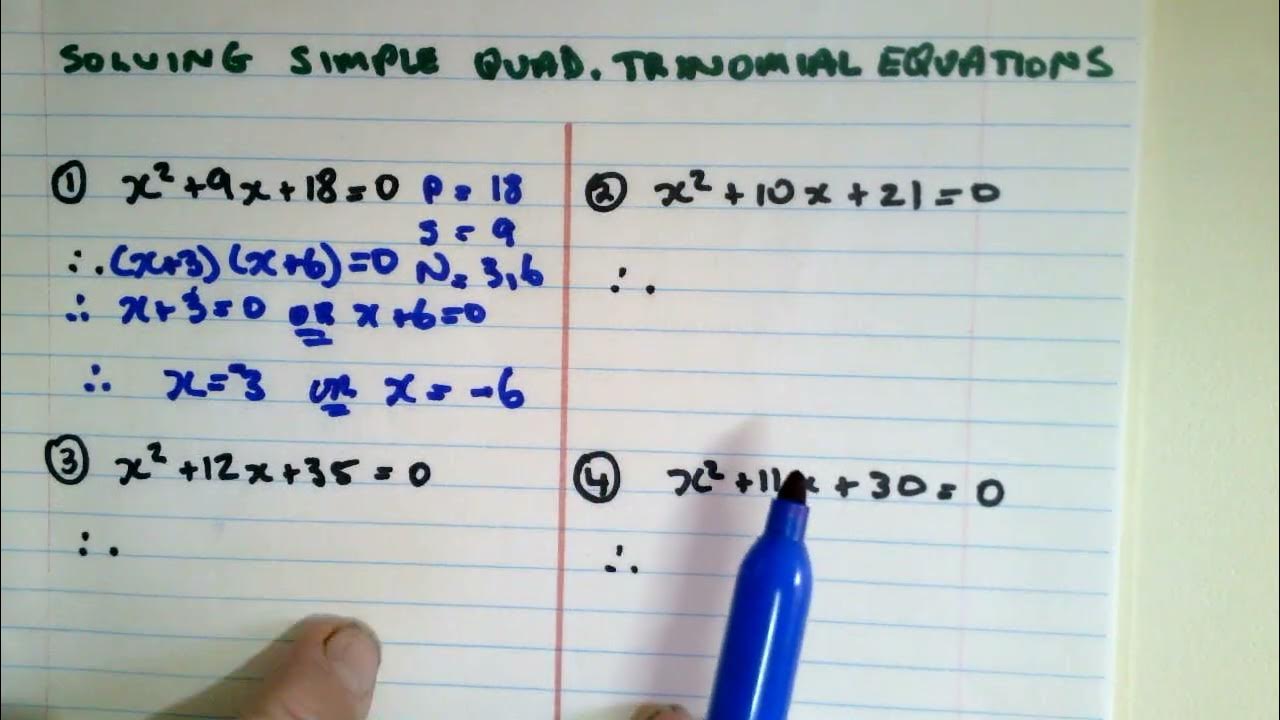 SOLVING SIMPLE QUAD. TRINOMIAL EQUATIONS
① x² + 9x + 18 = 0 P = 18
S = 9
∴ (x+3) (x+6) = 0 N = 3,6
∴ x + 3 = 0 OR x + 6 = 0
∴ x = -3 OR x = -6
② x² + 10x + 21 = 0
∴
③ x² + 12x + 35 = 0
∴
④ x² + 11x + 30 = 0
∴